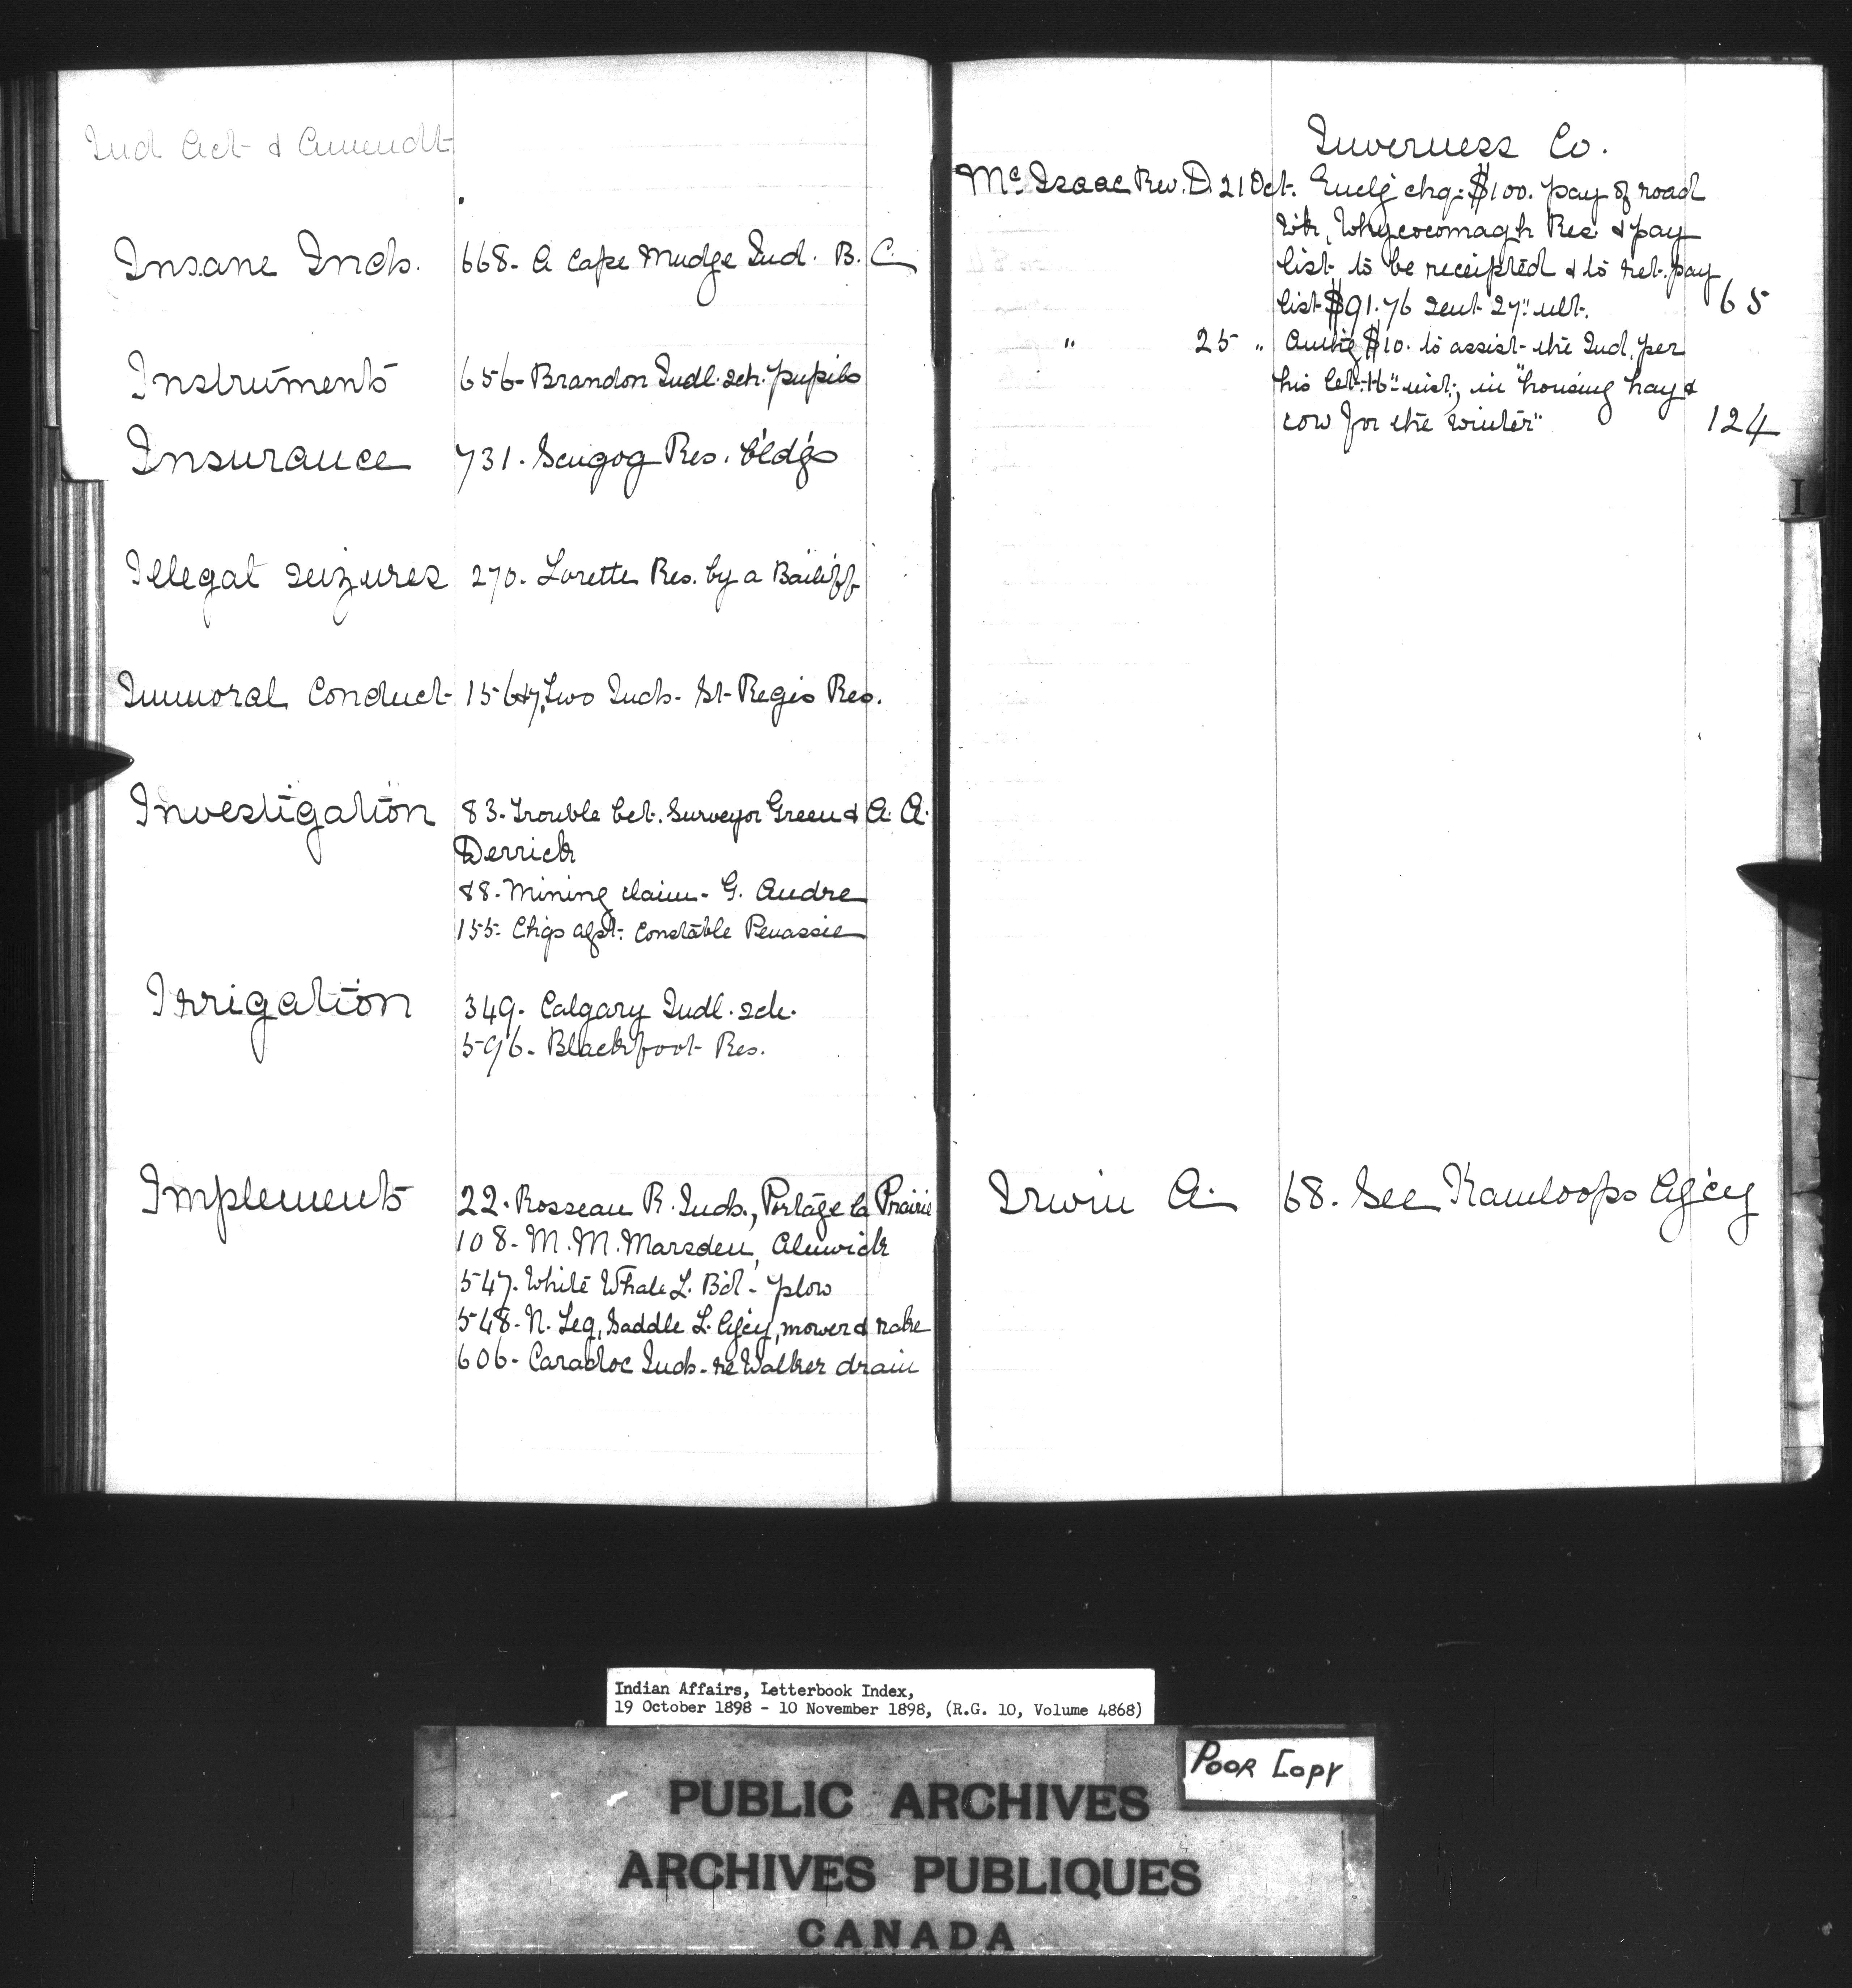 Ind Act & Amendt
Insane Inds. 668- A Cape Mudge Ind. B. C.
Instruments 656- Brandon Indl. sch. pupils
Insurance 731. Scugog Res. b'ld'gs
Illegal seizures 270- Lorette Res. by a Bailiff
Immoral Conduct- 156&7, Two Inds- St-Regis Res.
Investigation 83- Trouble bet. Surveyor Green & A. A.
Derrick
88- Mining claim- G. Andre
155- Chgs agst. Constable Penassie
Irrigation 349- Calgary Indl. sch.
596- Blackfoot Res.
Implements 22- Rosseau R. Inds., Portage la Prairie
108- M. M. Marsden, Alnwick
547- White Whale L. B'd- plow
548- N. Leg, Saddle L. Ag'cy, mower & rake
606- Caradoc Inds- re Walker drain
Inverness Co.
Mc. Isaac Rev. D. 21 Oct. Encl'g chq. $100. pay of road
w'k, Whycocomagh Res. & pay
list to be receipted & to ret. pay
list $91.76 sent 27" ult. 65
" 25 " Auth'g $10. to assist the Ind. per
his let. 16" inst; in "housing hay &
cow for the winter" 124
I
Irwin A. 68. See Kamloops Ag'cy
Indian Affairs, Letterbook Index,
19 October 1898 - 10 November 1898, (R.G. 10, Volume 4868)
POOR COPY
PUBLIC ARCHIVES
ARCHIVES PUBLIQUES
CANADA